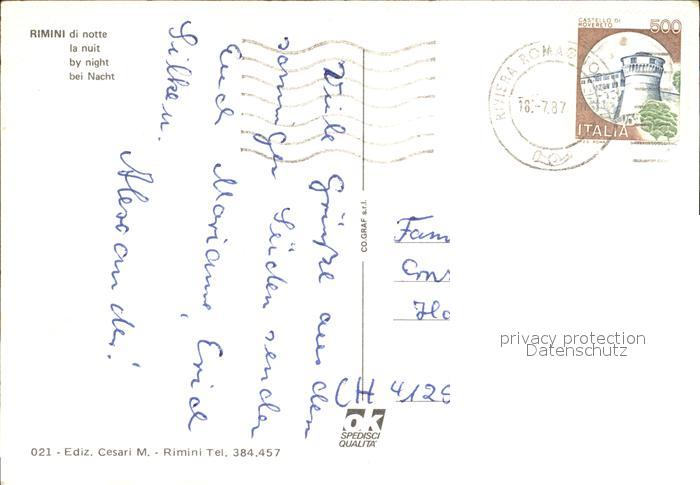 RIMINI di notte
la nuit
by night
bei Nacht
Viele Grüße aus dem
sonnigen Süden senden
Euch Mariann, Erich
Silken.
Alexander!
CO.GRAF s.r.l.
RIVIERA ROMAG
18.-7.87
CASTELLO DI
ROVERETO
500
ITALIA
Fam
Ho
CH 4125
privacy protection
Datenschutz
ok
SPEDISCI
QUALITA'
021 - Ediz. Cesari M. - Rimini Tel. 384.457